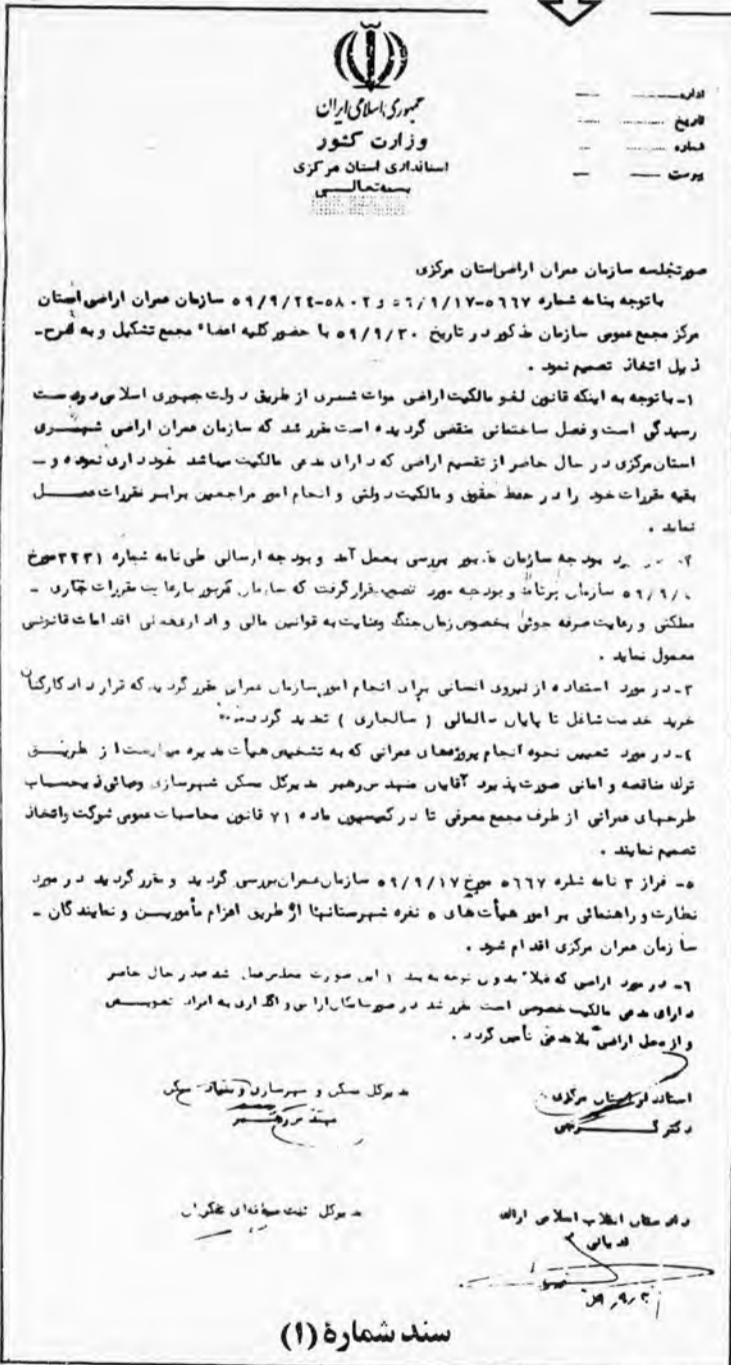 جمهوری اسلامی ایران
وزارت کشور
استانداری استان مرکزی
بسمه‌تعالی
اداره
تاریخ
شماره
پیوست
صورتجلسه سازمان عمران اراضی استان مرکزی
باتوجه بنامه شماره ۵۶۶۷-۵۹/۹/۱۷ و ۵۸۰۲-۵۹/۹/۲۴ سازمان عمران اراضی استان
مرکز مجمع عمومی سازمان مذکور در تاریخ ۵۹/۹/۳۰ با حضور کلیه اعضاء مجمع تشکیل و به شرح-
ذیل اتخاذ تصمیم نمود .
۱- باتوجه به اینکه قانون لغو مالکیت اراضی موات شهری از طریق دولت جمهوری اسلامی در دست
رسیدگی است و فصل ساختمانی منقضی گردیده است مقرر شد که سازمان عمران اراضی شهری
استان مرکزی در حال حاضر از تقسیم اراضی که دارای مدعی مالکیت میباشد خودداری نموده و -
بقیه مقررات خود را در حفظ حقوق و مالکیت دولتی و انجام امور مراجعین برابر مقررات عمل
نماید .
۲- در مورد بودجه سازمان مزبور بررسی بعمل آمد و بودجه ارسالی طی نامه شماره ۳۲۳۱ مورخ
سازمان برنامه و بودجه مورد تصویب قرار گرفت که سازمان مزبور با رعایت مقررات جاری -
مملکتی و رعایت صرفه جوئی بخصوص زمان جنگ و عنایت به قوانین مالی و اداری اقدامات قانونی
معمول نماید .
۳- در مورد استفاده از نیروی انسانی برای انجام امور سازمان عمران مقرر گردید که قرارداد کارکنان
خرید خدمت شاغل تا پایان سالمالی ( سالجاری ) تمدید گردد
۴- در مورد تعیین نحوه انجام پروژه‌های عمرانی که به تشخیص هیأت مدیره میبایست از طریق
ترک مناقصه و امانی صورت پذیرد آقایان مهندس رهبر مدیرکل مسکن شهرسازی و ذیحساب
طرحهای عمرانی از طرف مجمع معرفی تا در کمیسیون ماده ۷۱ قانون محاسبات عمومی شرکت و اتخاذ
تصمیم نمایند .
۵- فراز ۳ نامه شماره ۵۶۶۷ مورخ ۵۹/۹/۱۷ سازمان عمران بررسی گردید و مقرر گردید در مورد
نظارت و راهنمائی بر امور هیأت‌های ۵ نفره شهرستانها از طریق اعزام مأمورین و نمایندگان -
سازمان عمران مرکزی اقدام شود .
۶- در مورد اراضی که قبلا بدون توجه به بند ۱ این صورت مجلس عمل شده در حال حاضر
دارای مدعی مالکیت خصوصی است مقرر شد در صورت واگذاری به افراد تعویض
و از محل اراضی بلامدعی تأمین گردد .
استاندار استان مرکزی
دکتر
مدیرکل مسکن و شهرسازی و بنیاد مسکن
مهندس رهبر
دادستان انقلاب اسلامی اراک
مدیرکل ثبت
سند شمارهٔ (۱)